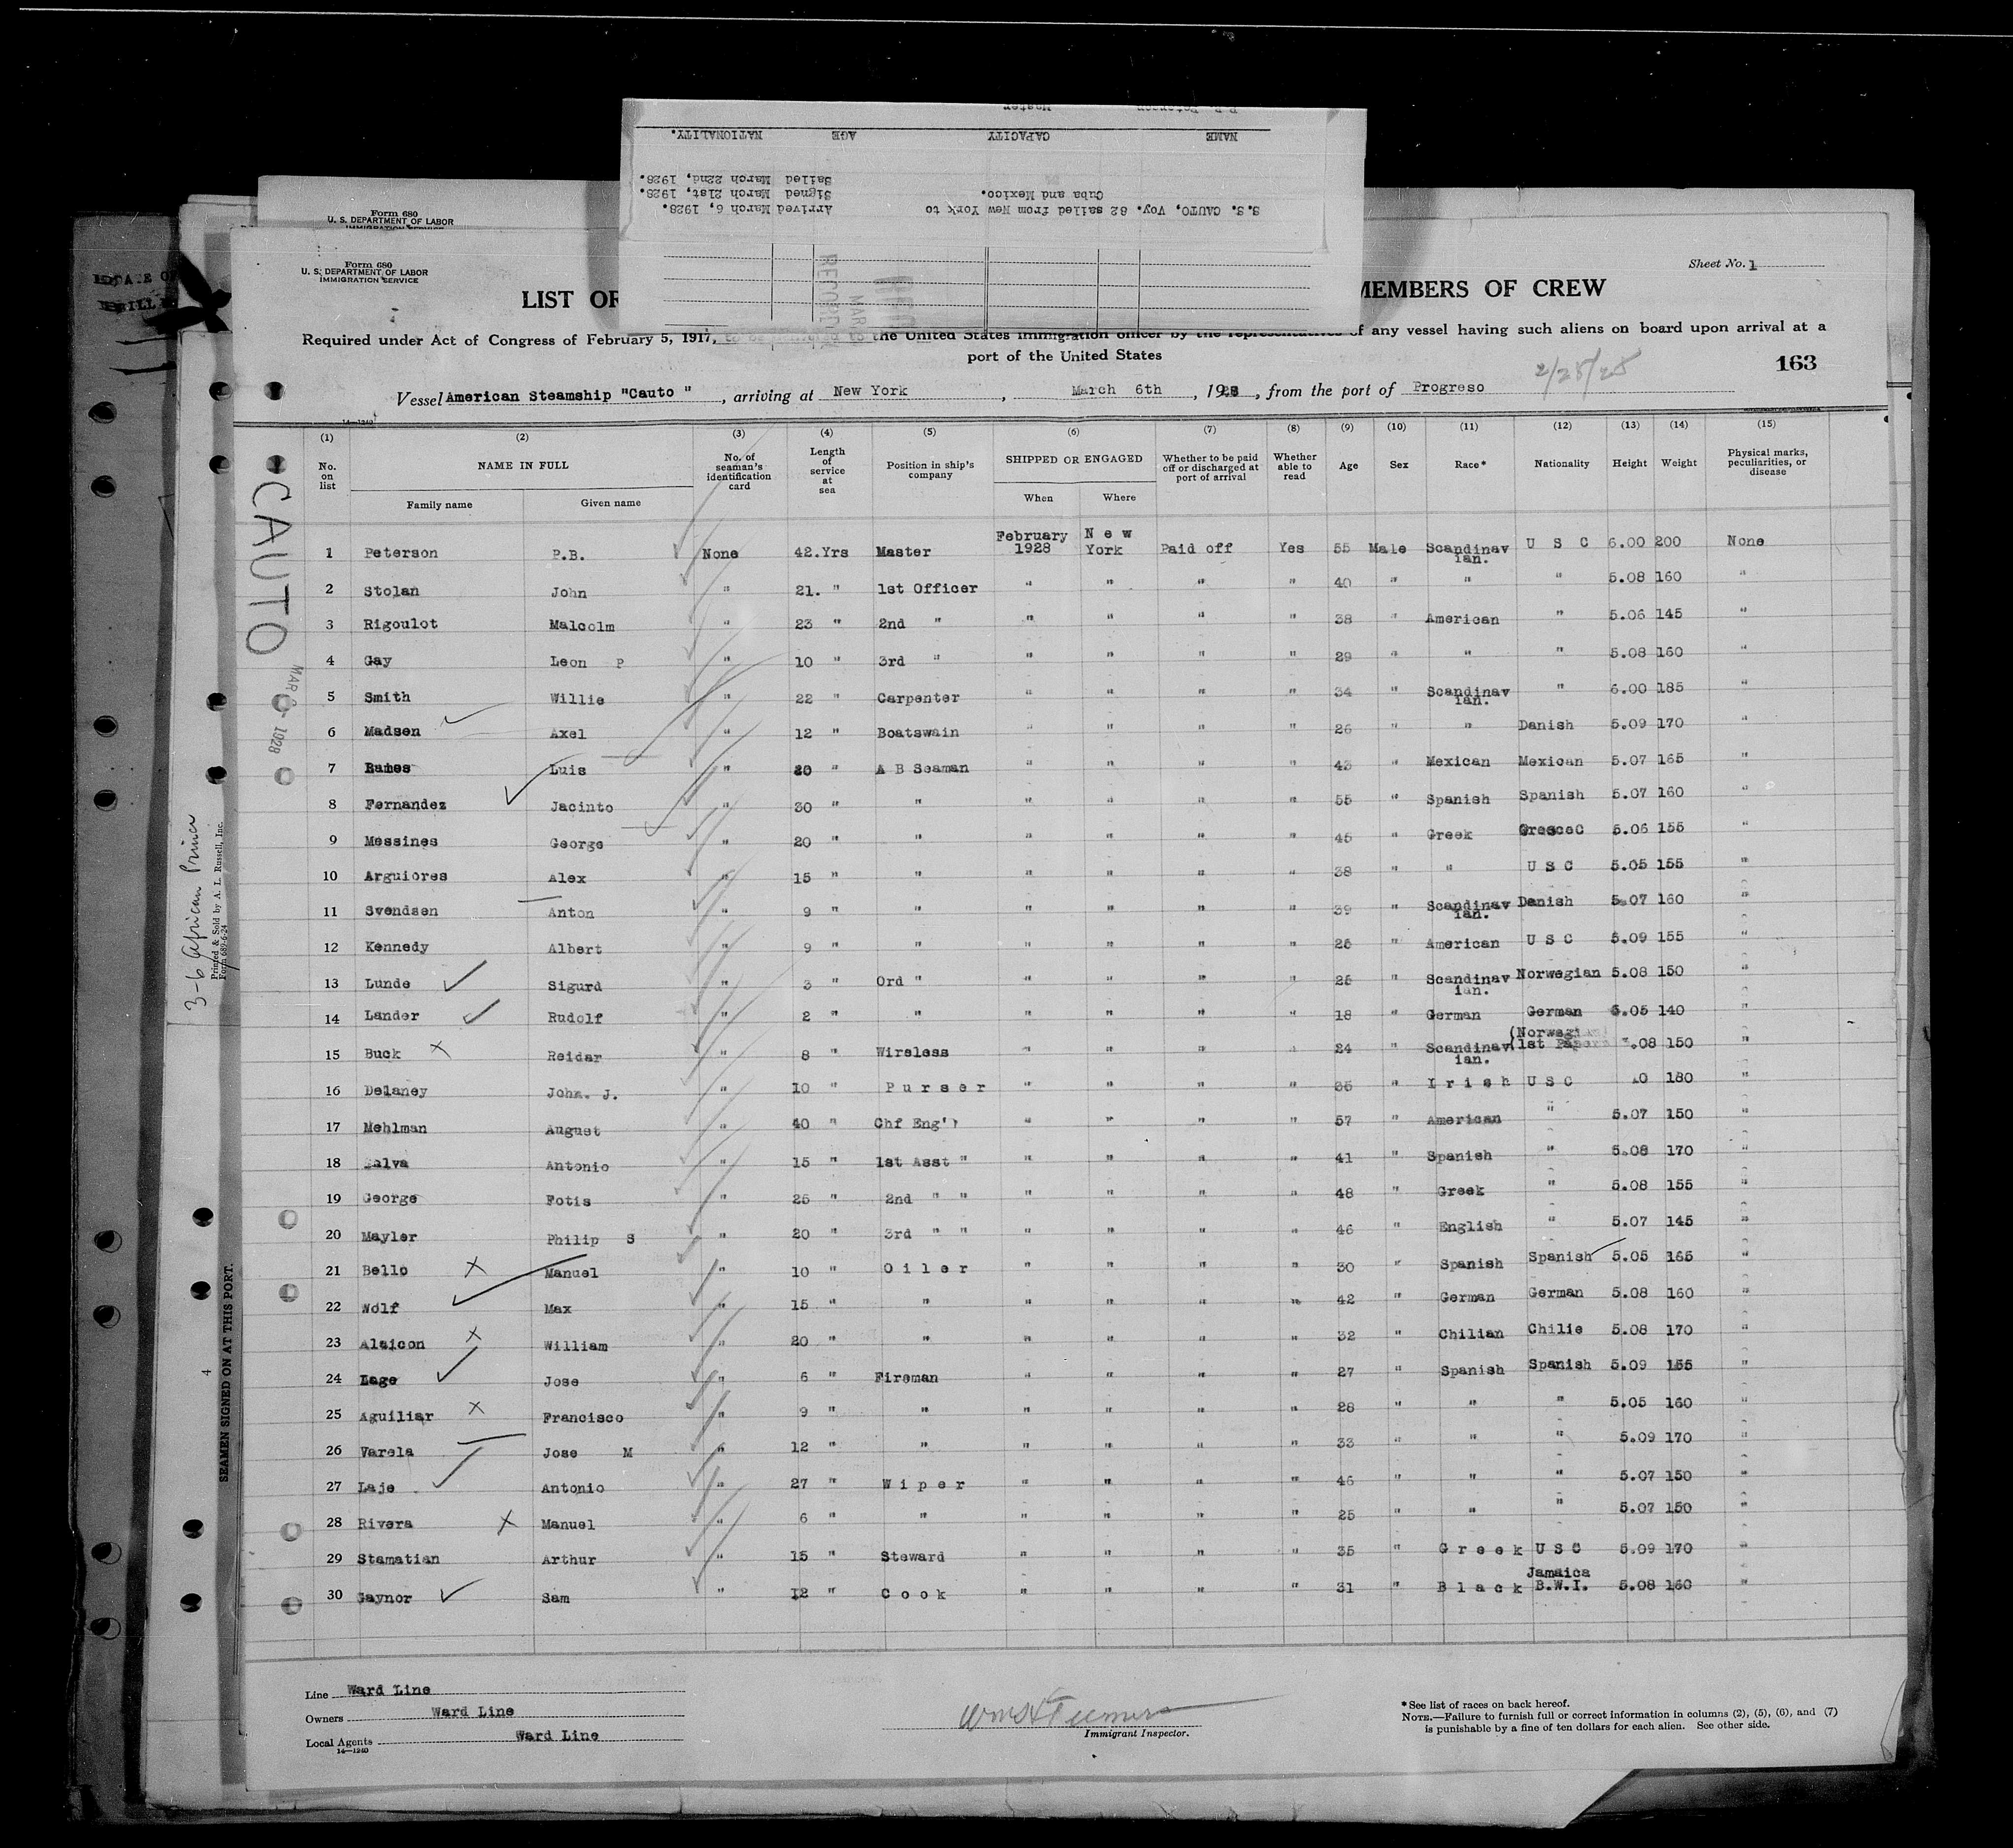 P.B. Peterson Master
NAME CAPACITY AGE NATIONALITY.
Sailed March 22nd, 1928.
Cuba and Mexico. Signed March 21st, 1928.
S.S. CAUTO, Voy. 82 sailed from New York to Arrived March 6, 1928.
Form 680
U. S. DEPARTMENT OF LABOR
IMMIGRATION SERVICE
Form 680
U. S. DEPARTMENT OF LABOR
IMMIGRATION SERVICE
Sheet No. 1
LIST OR MEMBERS OF CREW
Required under Act of Congress of February 5, 1917, to be delivered to the United States immigration officer by the representatives of any vessel having such aliens on board upon arrival at a
port of the United States
163
2/28/28
Vessel American Steamship "Cauto ", arriving at New York, March 6th, 1928, from the port of Progreso
14—1240
(1) (2) (3) (4) (5) (6) (7) (8) (9) (10) (11) (12) (13) (14) (15)
No. on list NAME IN FULL No. of seaman's identification card Length of service at sea Position in ship's company SHIPPED OR ENGAGED Whether to be paid off or discharged at port of arrival Whether able to read Age Sex Race* Nationality Height Weight Physical marks, peculiarities, or disease
Family name Given name When Where
1 Peterson P.B. None 42.Yrs Master February 1928 New York Paid off Yes 55 Male Scandinavian. U S C 6.00 200 None
2 Stolan John " 21. " 1st Officer " " " " 40 " " " 5.08 160 "
3 Rigoulot Malcolm " 23 " 2nd " " " " " 38 " American " 5.06 145 "
4 Gay Leon P " 10 " 3rd " " " " " 29 " " " 5.08 160 "
5 Smith Willie " 22 " Carpenter " " " " 34 " Scandinavian. " 6.00 185 "
6 Madsen Axel " 12 " Boatswain " " " " 26 " " Danish 5.09 170 "
7 Luis " 20 " A B Seaman " " " " 43 " Mexican Mexican 5.07 165 "
8 Fernandez Jacinto " 30 " " " " " " 55 " Spanish Spanish 5.07 160 "
9 Messines George " 20 " " " " " " 45 " Greek 5.06 155 "
10 Arguiores Alex " 15 " " " " " " 38 " " U S C 5.05 155 "
11 Svendsen Anton " 9 " " " " " " 39 " Scandinavian. Danish 5.07 160 "
12 Kennedy Albert " 9 " " " " " " 25 " American U S C 5.09 155 "
13 Lunde Sigurd " 3 " Ord " " " " " 25 " Scandinavian. Norwegian 5.08 150 "
14 Lander Rudolf " 2 " " " " " " 18 " German German 5.05 140 "
15 Buck Reidar " 8 " Wireless " " " " 24 " Scandinavian. (Norwegian (1st Papers .08 150 "
16 Delaney John. J. " 10 " Purser " " " " 35 " Irish U S C 180 "
17 Mehlman August " 40 " Chf Eng'r " " " " 57 " American " 5.07 150 "
18 Antonio " 15 " 1st Asst " " " " " 41 " Spanish " 5.08 170 "
19 George Fotis " 25 " 2nd " " " " " " 48 " Greek " 5.08 155 "
20 Mayler Philip S " 20 " 3rd " " " " " " 46 " English " 5.07 145 "
21 Bello Manuel " 10 " Oiler " " " " 30 " Spanish Spanish 5.05 165 "
22 Wolf Max " 15 " " " " " " 42 " German German 5.08 160 "
23 William " 20 " " " " " " 32 " Chilian Chilie 5.08 170 "
24 Lage Jose " 6 " Fireman " " " " 27 " Spanish Spanish 5.09 155 "
25 Aguiliar Francisco " 9 " " " " " " 28 " " " 5.05 160 "
26 Varela Jose M " 12 " " " " " " 33 " " " 5.09 170 "
27 Laje Antonio " 27 " Wiper " " " " 46 " " " 5.07 150 "
28 Rivera Manuel " 6 " " " " " " 25 " " " 5.07 150 "
29 Stamatian Arthur " 15 " Steward " " " " 35 " Greek U S C 5.09 170 "
30 Gaynor Sam " 12 " Cook " " " " 31 " Black Jamaica B.W.I. 5.08 160 "
CAUTO
MAR 6 - 1928
3-6 African Prince
Printed & Sold by A. L. Russell, Inc.
Form 689-6-24
4
SEAMEN SIGNED ON AT THIS PORT.
Line Ward Line
Owners Ward Line
Local Agents Ward Line
14—1240
Immigrant Inspector.
*See list of races on back hereof.
NOTE.—Failure to furnish full or correct information in columns (2), (5), (6), and (7)
is punishable by a fine of ten dollars for each alien. See other side.